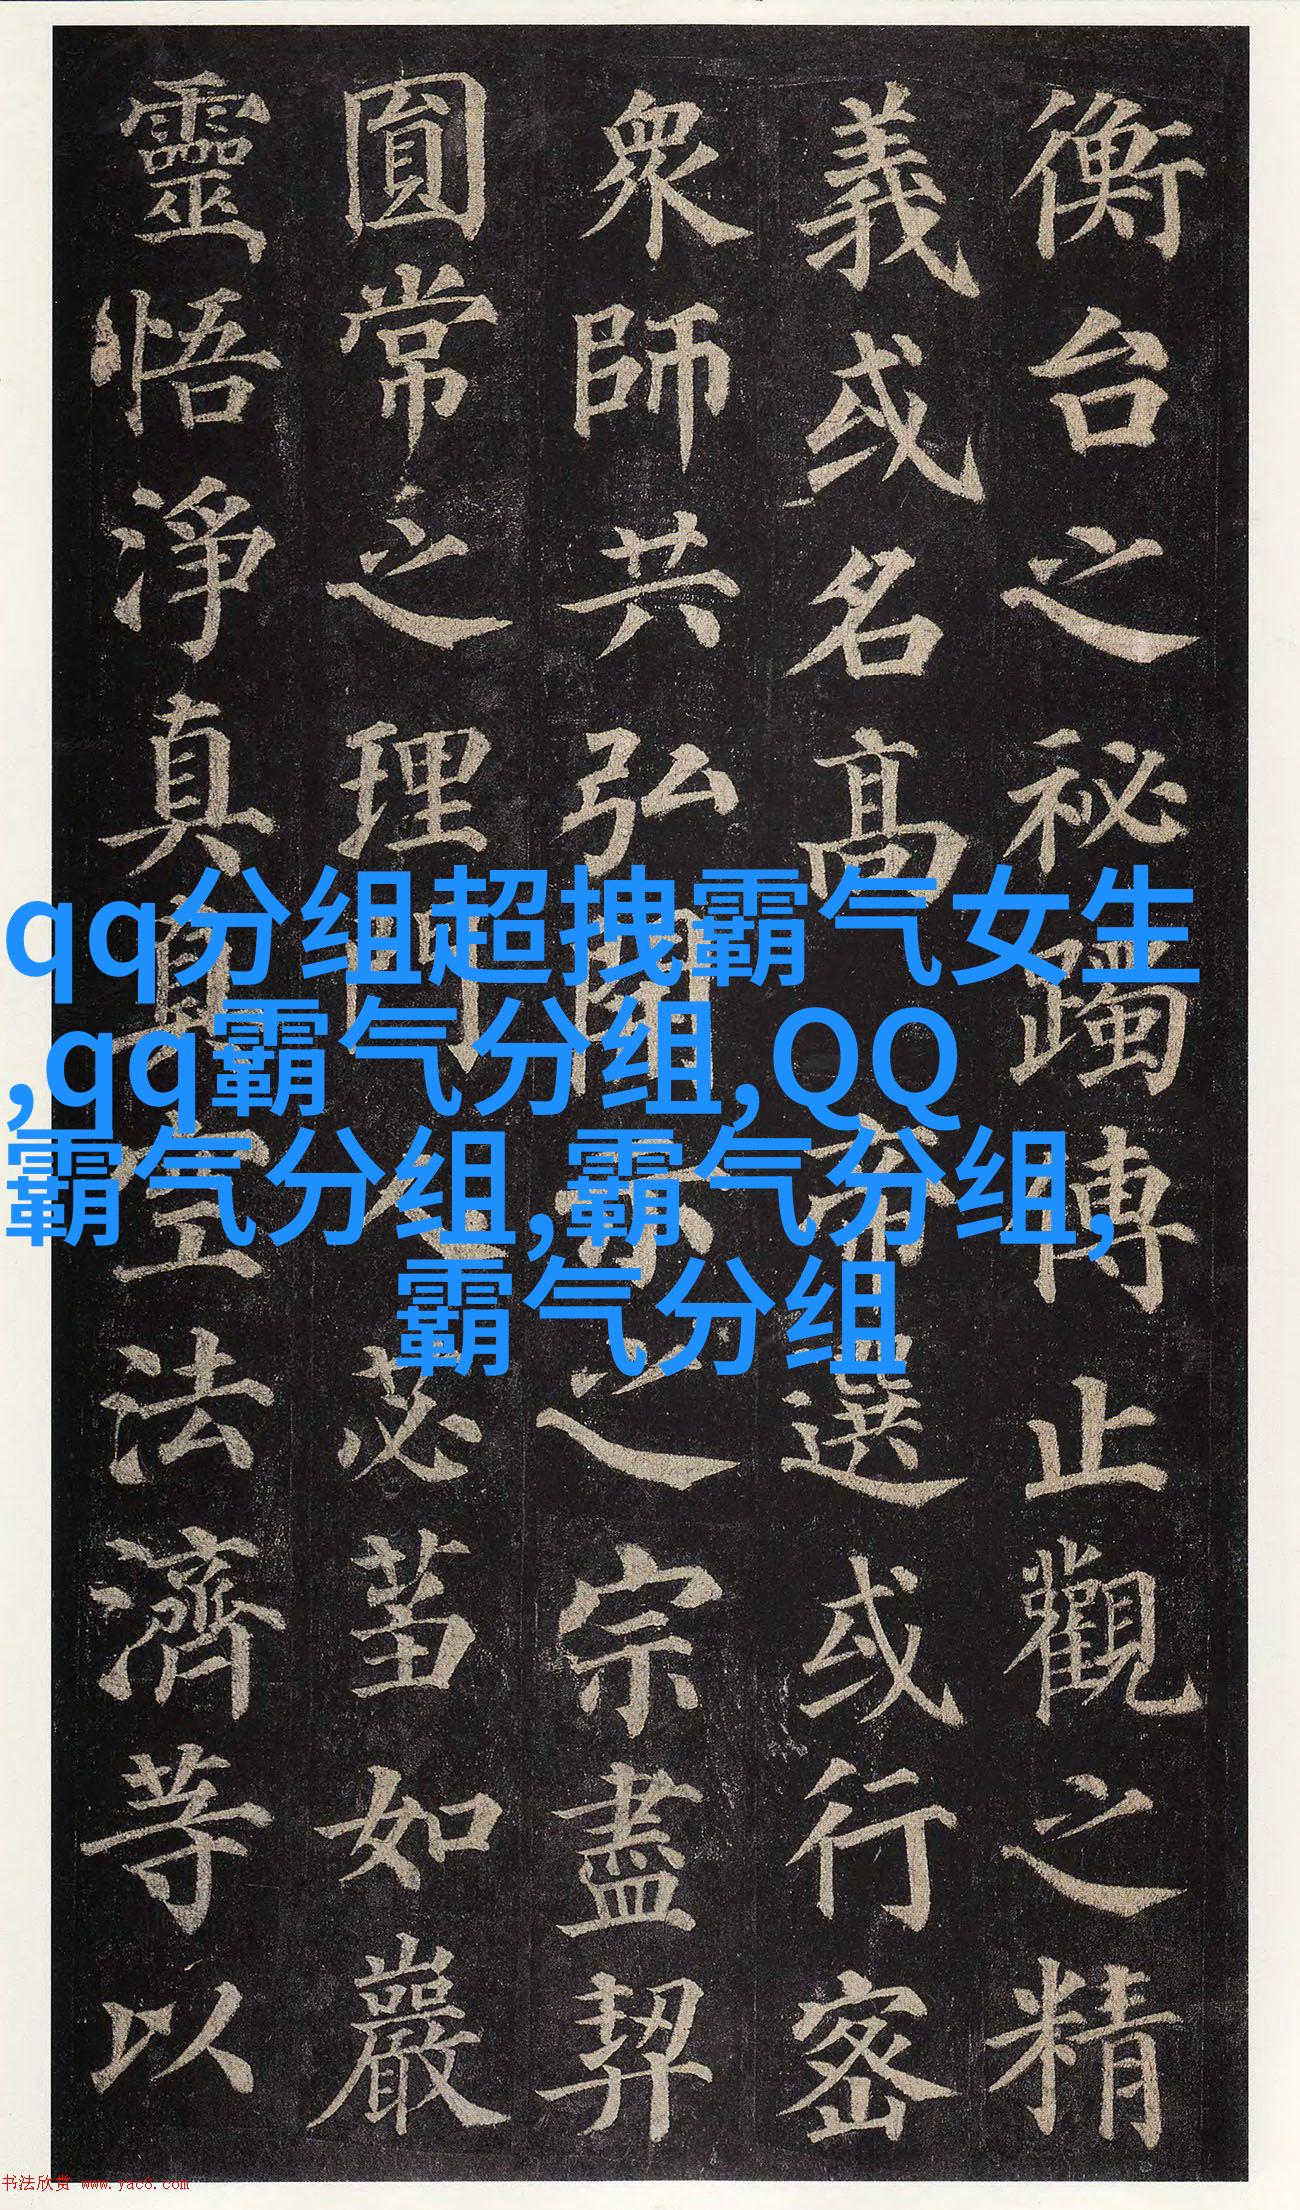 衡台之秘躅傳止觀之精
義或名高帝選或行密
衆師共弘開示之宗盡契
圓常之理門人苾蒭如嚴
靈悟淨真真空法濟等以
qq分组超拽霸气女生
,qq霸气分组,QQ
霸气分组,霸气分组,
霸气分组
书法欣赏 www.yac8.com